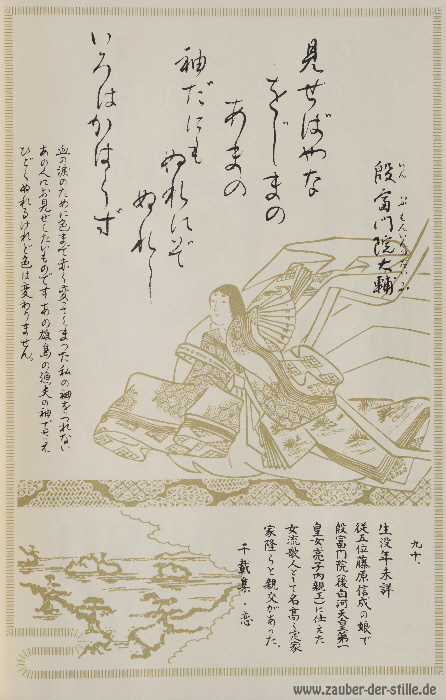 見せばやな
をじまの
あまの
袖だにも
ぬれにぞ
ぬれし
いろはかはらず
殷富門院大輔
いんぷもんいんのたいふ
血の涙のために色まで赤く変ってしまった私の袖をつれない
あの人にお見せしたいものです あの雄島の漁夫の袖でさえ
ひどくぬれるけれど色は変わりません。
九十、
生没年未詳
従五位藤原信成の娘で
殷富門院（後白河天皇第一
皇女亮子内親王）に仕えた
女流歌人として名高く定家
家隆らと親交があった。
千載集・恋
www.zauber-der-stille.de